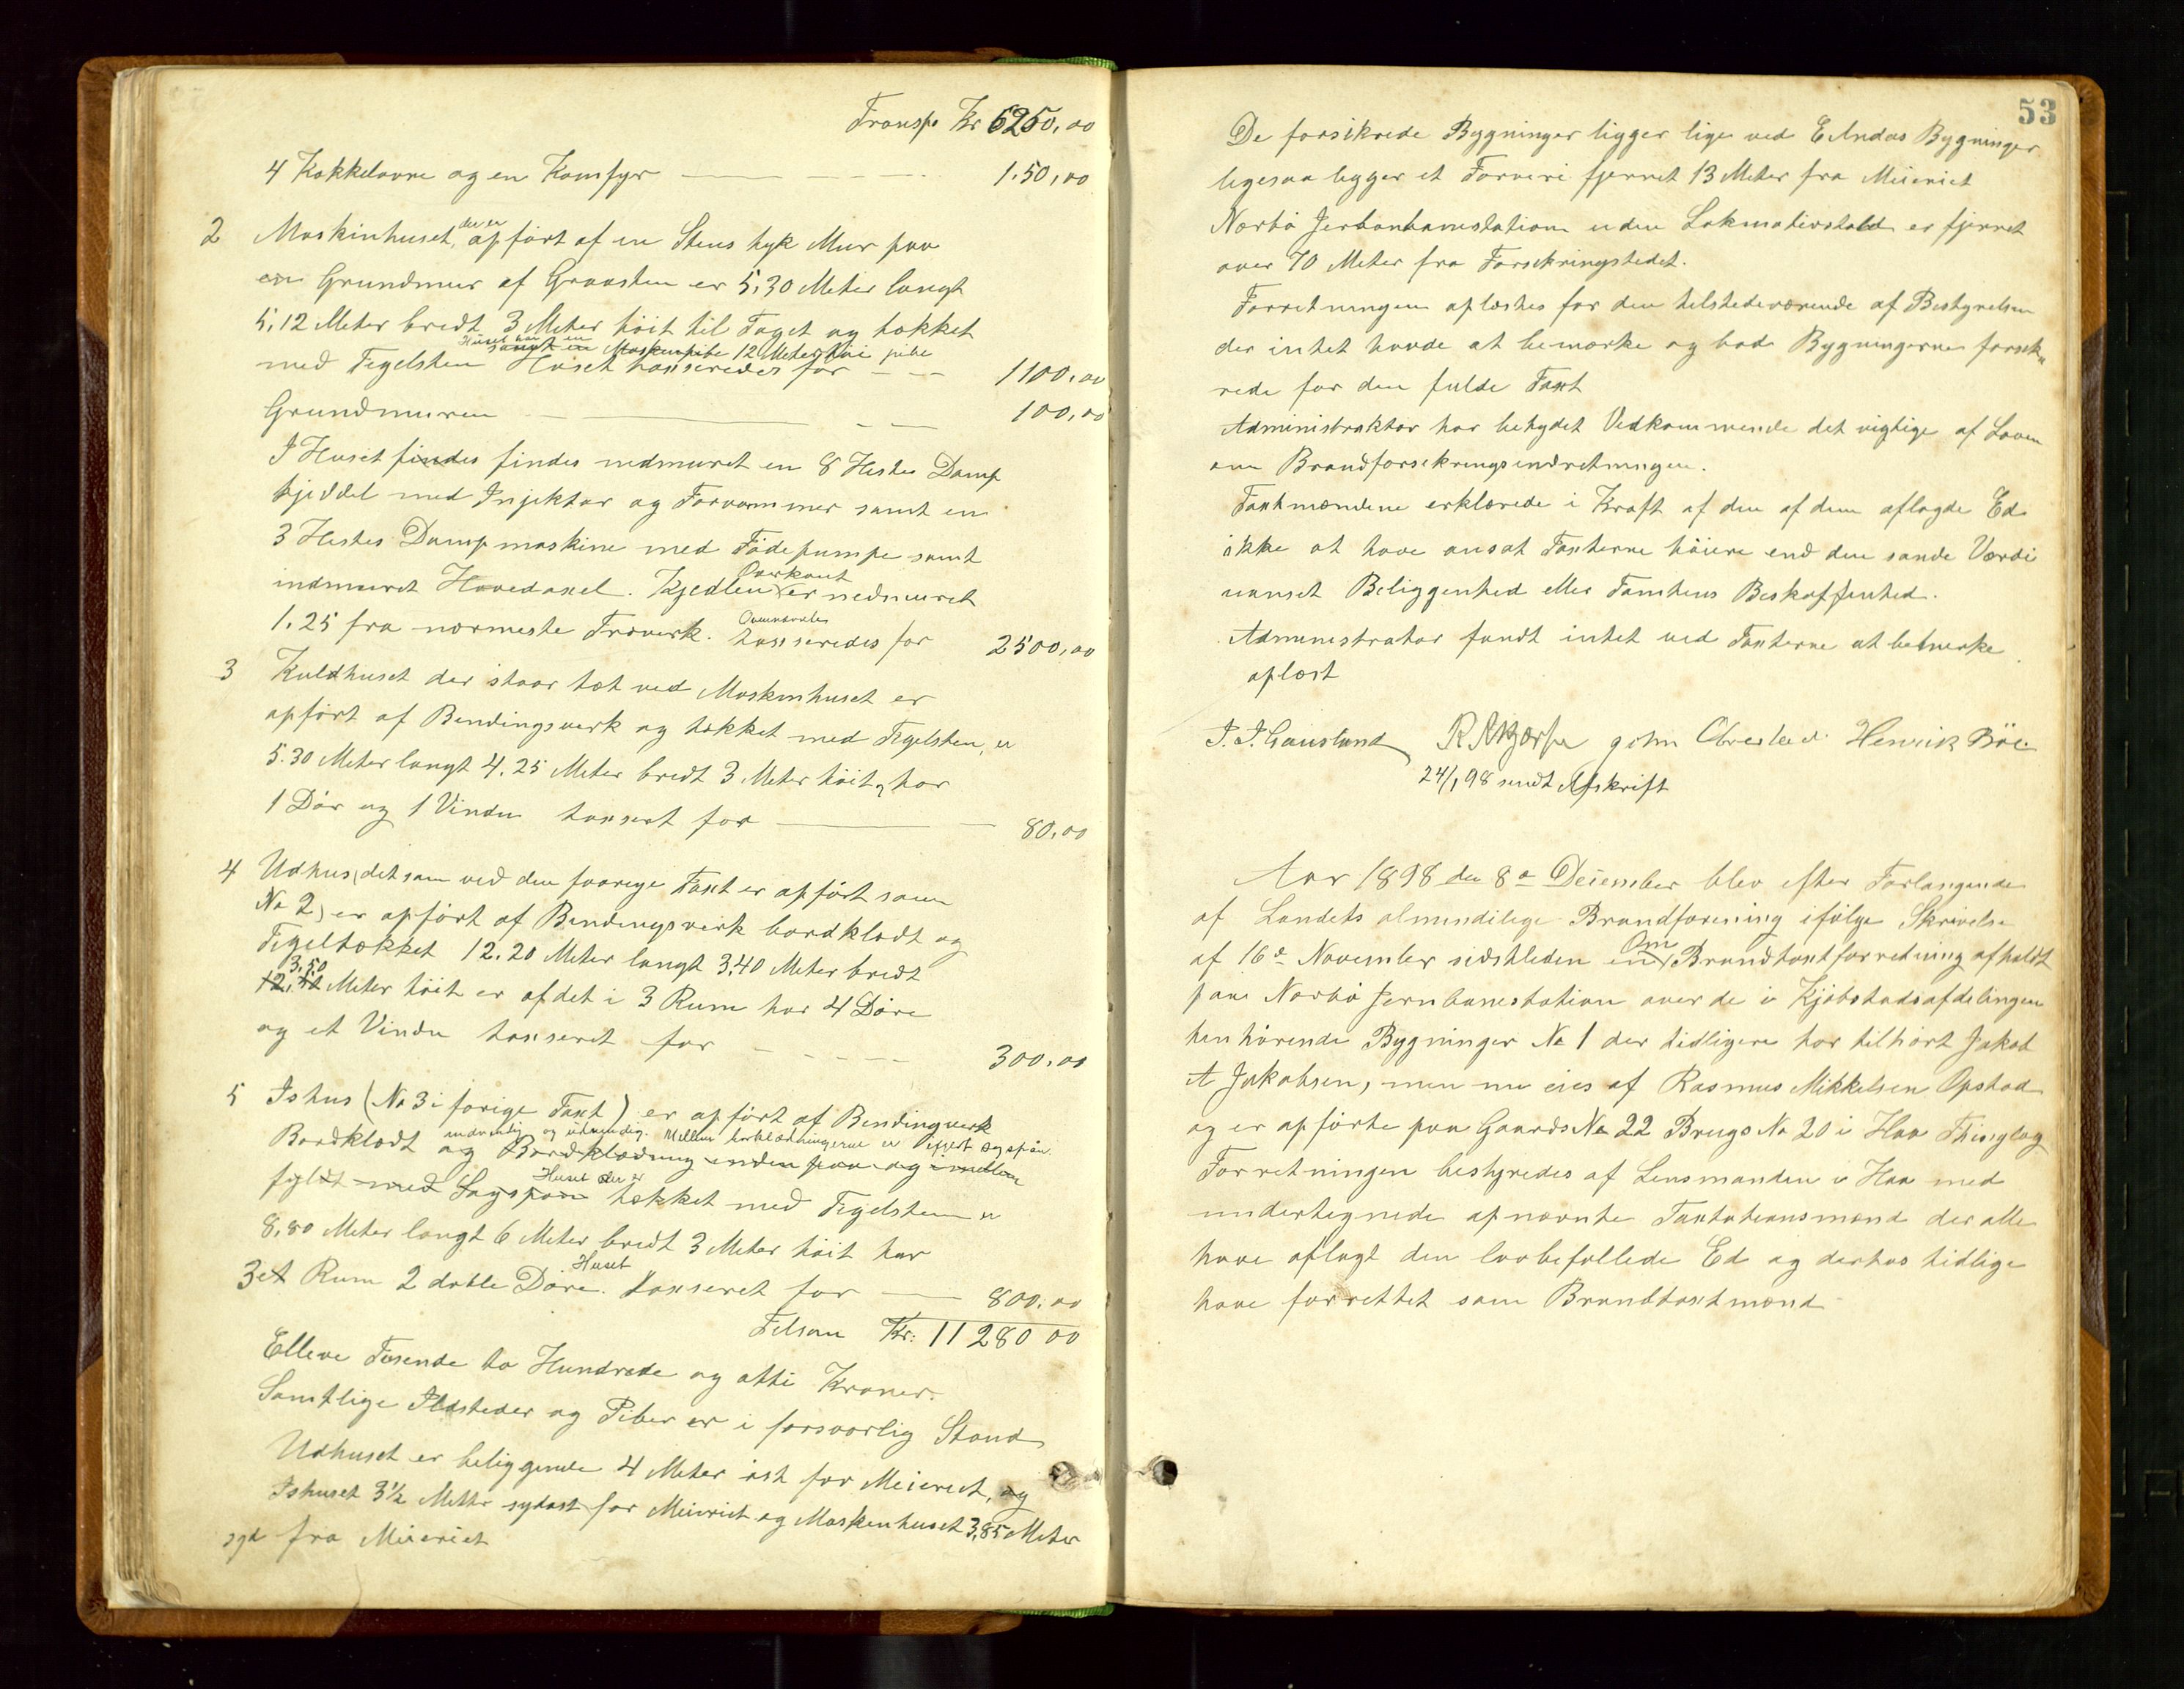 Transp. Kr 6250,00
4 Kakkelovne og en Komfyr — — — 1.50,00
2 Maskinhuset, der er opført af en Stens tyk Mur paa
en Grundmur af Graasten er 5,30 Meter langt
5,12 Meter bredt 3 Meter høit til Taget og tækket
Huset har en Maskinpibe 12 Meter høi pibe
med Tegelsten Huset taxseredes for — — 1100,00
Grundmuren — — — 100,00
I Huset findes findes nedmuret en 8 Hestes Damp
kjeddel med Injektor og Forvarmmer samt en
3 Hestes Dampmaskine med Fødepumpe samt
indmuret Hovedaxel. Kjedlens Overkant er nedmuret
1.25 fra nærmeste Træverk. Ovennævnte taxseredes for 2500,00
3 Kuldhuset der staar tæt ved Maskinhuset er
opført af Bindingsverk og tækket med Tegelsten, er
5.30 Meter langt 4.25 Meter bredt 3 Meter høit, har
1 Dør og 1 Vindu taxsert for — — 80,00
4 Udhus (det som ved den forrige Taxt er opført som
No 2) er opført af Bindingsverk bordklædt og
Tegeltækket 12.20 Meter langt 3,40 Meter bredt
3,50 Meter høit er afdet i 3 Rum har 4 Døre
og et Vindu taxseret for — — — 300,00
5 Ishus (No 3 i forige Taxt) er opført af Bindingverk
indvendig og udvendig. Mellem bordklædningerne er
Bordklædt og Bordklædning inden paa og imellem
fyldt med Sagspaan Huset der er tækket med Tegelsten er
8,80 Meter langt 6 Meter bredt 3 Meter høit har
3 et Rum 2 doble Døre. Huset taxseret for — 800,00
Tilsam Kr: 11 280 00
Elleve Tusende to Hundrede og otti Kroner.
Samtlige Ildsteder og Piber er i forsvarlig Stand
Udhuset er beliggende 4 Meter øst for Meieriet, og
Ishuset 3½ Metter sydøst for Meieriet og Maskenhuset 3,85 Meter
syd fra Meieriet
53
De forsikrede Bygninger ligger lige ved E Andas Bygninger
ligesaa ligger et Farveri fjernet 13 Meter fra Meieriet
Nærbø Jerbanbanestation uden Lokmotivstald er fjernet
over 70 Meter fra Forsikringstedet.
Forretningen oplæstes for den tilstedeværende af Bestyrelsen
der intet havde at bemærke og bad Bygningerne forsik-
rede for den fulde Taxt
Administraktor har betydet Vedkommende det vigtige af Loven
om Brandforsikringsindretningen.
Taxtmændene erklærede i Kraft af den af dem aflagde Ed
ikke at have ansat Taxterne høiere end den sande Værdi
uanset Beliggenhed eller Tomtens Beskaffenhed.
Administrator fandt intet ved Taxterne at bemerke
oplæst
J. J. Gausland John Obrestad Henrik Böe
24/1 98 sendt Afskrift
Aar 1898 den 8de Desember blev efter Forlangende
af Landets almindilige Brandforening ifølge Skrivelse
af 16de November sidstleden en Om Brandtaxtforretning afholdt
paa Nærbø Jernbanestation over de i Kjøbstadsafdelingen
henhørende Bygninger No 1 der tidligere har tilhørt Jakob
A Jakobsen, men nu eies af Rasmus Mikkelsen Opstad
og er opførte paa Gaards No 22 Brugs No 20 i Haa Thinglag
Forretningen bestyredes af Lensmanden i Haa med
undertegnede opnævnte Taxtationsmænd der alle
have aflagt den lovbefallede Ed og derhos tidlige
have forrettet som Brandtaxtmænd